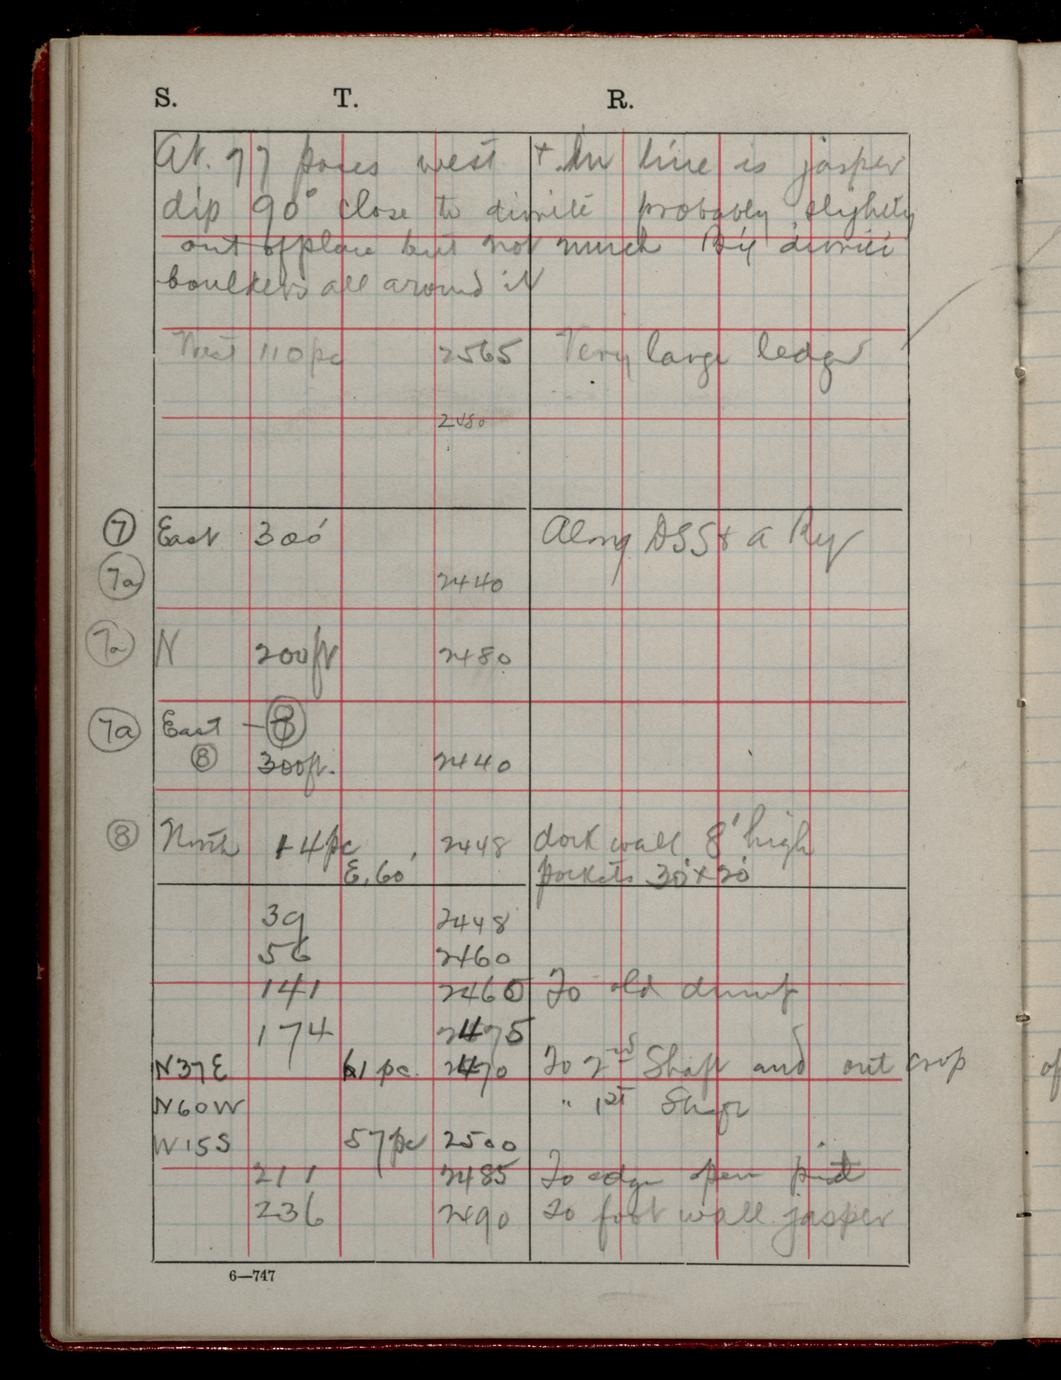 S. T. R.
At. 77 paces west + in line is jasper
dip 90° close to diorite probably slightly
out of place but not much Big diorite
boulders all around it
West 110 pc 2565 Very large ledge
2480
7 East 300' Along DSS & a Ry
7a 2440
7a N 200 ft 2480
7a East - 8
8 300 ft. 2440
8 North 14 pc 2448 dork wall 8' high
E. 60' pockets 30' x 20'
39 2448
56 2460
141 2465 To old dump
174 2475
N37E 61 pc. 2470 To 2nd Shaft and out crop
N60W " 1st Shaft
W15S 57 pc 2500
211 2485 To edge open pit
236 2490 To foot wall jasper
6—747